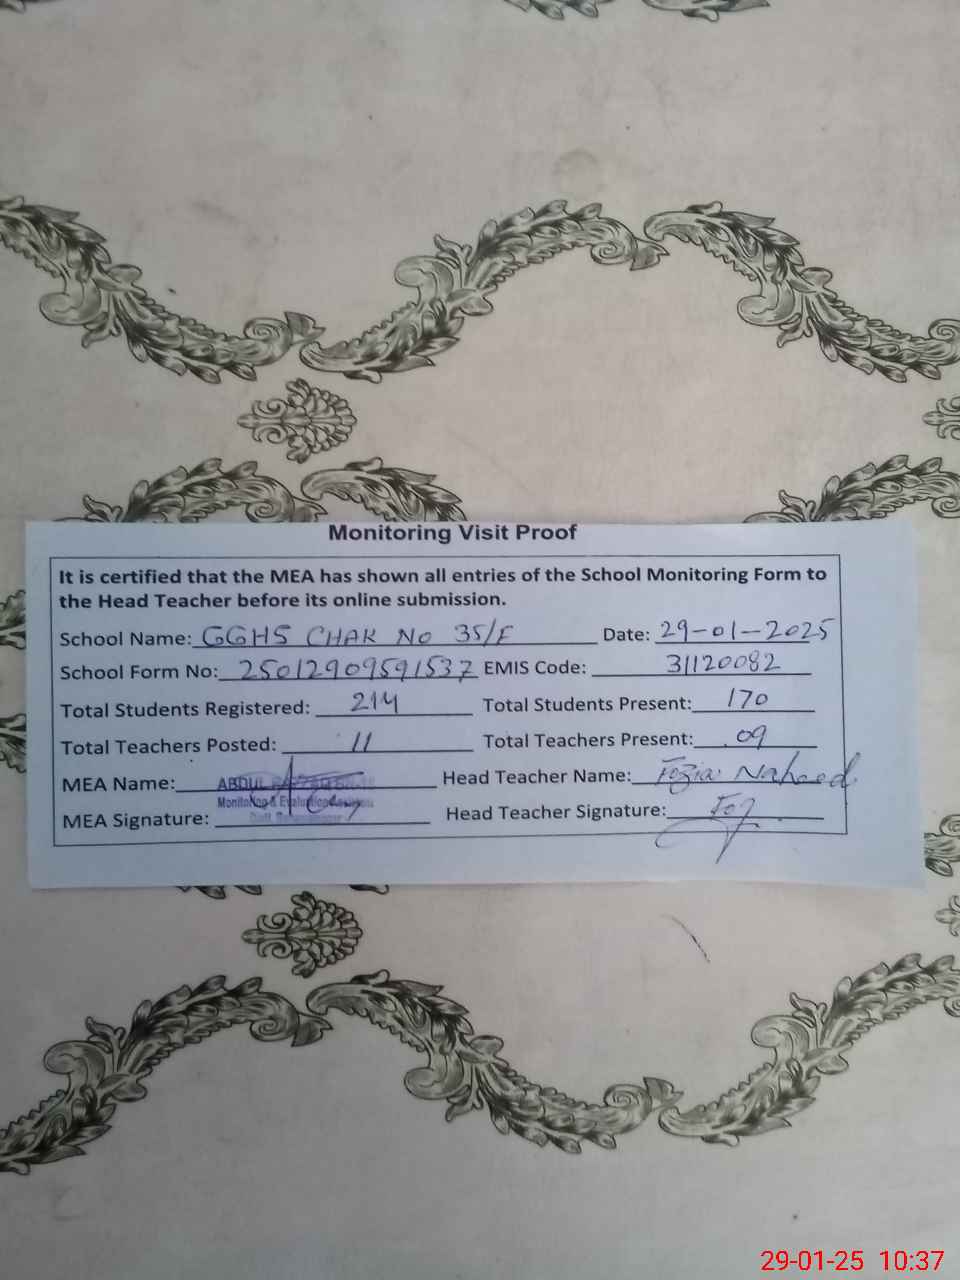 Monitoring Visit Proof
It is certified that the MEA has shown all entries of the School Monitoring Form to
the Head Teacher before its online submission.
School Name: GGHS CHAK NO 35/F Date: 29-01-2025
School Form No: 25012909591537 EMIS Code: 31120082
Total Students Registered: 214 Total Students Present: 170
Total Teachers Posted: 11 Total Teachers Present: 09
MEA Name: ABDUL Head Teacher Name: Fozia Naheed
Monitoring & Evaluation
MEA Signature: Head Teacher Signature: Foz
29-01-25 10:37